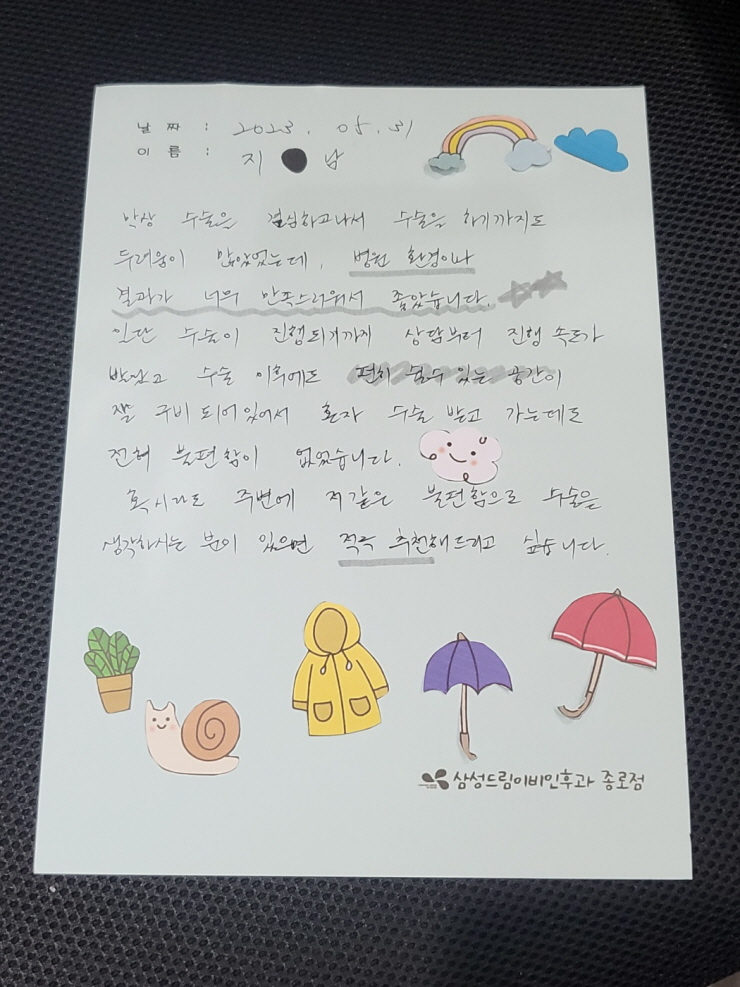 날 짜 : 2023. 05. 31
이 름 : 지 남
막상 수술을 결심하고나서 수술을 하기까지도
두려움이 많았었는데, 병원 환경이나
결과가 너무 만족스러워서 좋았습니다.
일단 수술이 진행되기까지 상담부터 진행 속도가
빨랐고 수술 이후에도 편히 쉴수 있는 공간이
잘 구비 되어있어서 혼자 수술 받고 가는데도
전혀 불편함이 없었습니다.
혹시라도 주변에 저같은 불편함으로 수술을
생각하시는 분이 있으면 적극 추천해드리고 싶습니다.
삼성드림이비인후과 종로점